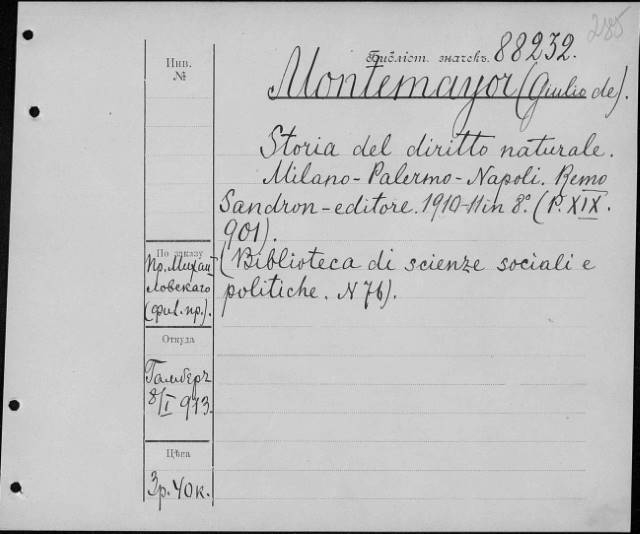 285
Библіот. значекъ. 88232.
Инв.
№
Montemayor (Giulio de).
Storia del diritto naturale.
Milano-Palermo-Napoli. Remo
Sandron-editore. 1910-11 in 8°. (P. XIX.
901).
(Biblioteca di scienze sociali e
politiche. N 76).
По заказу
Пр. Михай
ловскаго
(фил. пр.).
Откуда
Гамберъ
8/I 913.
Цѣна
3 р. 40 к.